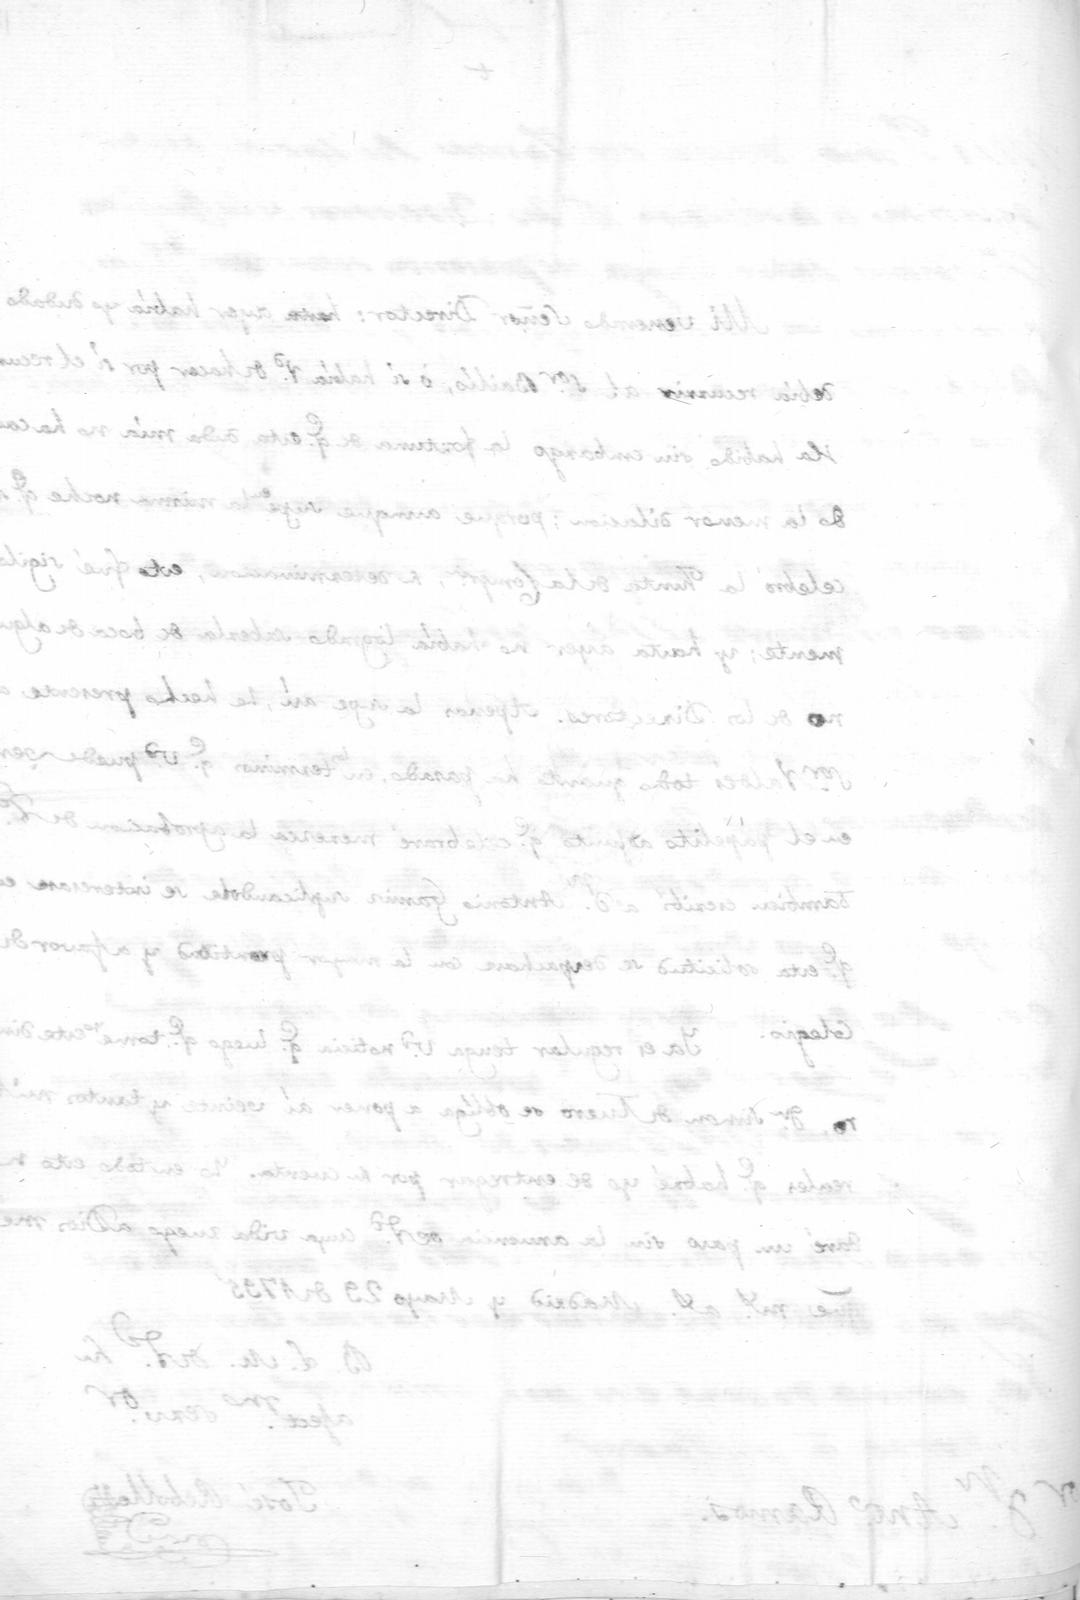 +
Mi venerado Señor Director: hasta ayer habia yo dudado
debia recurrir al S.or Bailío, ò si habia V.d de hacer por sí el recur
Ha habido sin embargo la fortuna de q.e esta duda mía no ha cau
do la menor dilacion; porque aunque supe la misma noche q.e
celebró la Junta de la Congr.n, su determinacion, esto fué sigilo
mente; y hasta ayer no habia logrado saberla de boca de algu
no de los Directores. Apenas la supe así, he hecho presente a
S.or Valdés todo quanto ha pasado, en terminos q.e V.d puede ver
en el papelito adjunto q.e celebraré merezca la aprobacion de V.d
Tambien escribí a D.n Antonio Gamir suplicandole se interesase e
q.e esta solicitud se despachara con la mayor prontitud y a favor de
Colegio. Ya es regular tenga V.d noticia q.e luego q.e tome este din
ro, D.n Simon de Huero se obliga a poner ai veinte y tantos mil
reales q.e habré yo de entregar por su cuenta. Yo en todo esto n
daré un paso sin la anuencia de V.d cuya vida ruego a Dios me
gue m.s a.s Madrid y Mayo 29 de 1795
B. L. M. de V.d su
afect.mo serv.or
José Rebollo
S.r D.n Ant.o Ramos.